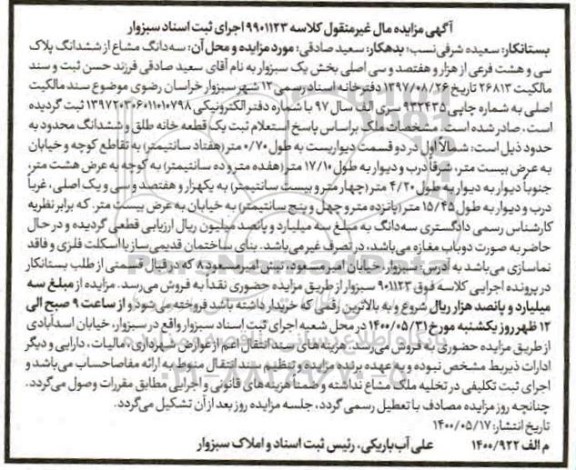 آگهی مزایده مال غیرمنقول کلاسه ۹۹۰۱۱۲۳ اجرای ثبت اسناد سبزوار
بستانکار: سعیده شرفی‌نسب، بدهکار: سعید صادقی: مورد مزایده و محل آن: سه‌دانگ مشاع از ششدانگ پلاک
سی و هشت فرعی از هزار و هفتصد و سی اصلی بخش یک سبزوار به نام آقای سعید صادقی فرزند حسن ثبت و سند
مالکیت ۲۶۸۱۳ تاریخ ۱۳۹۷/۰۸/۲۶ دفترخانه اسناد رسمی ۱۳ شهر سبزوار خراسان رضوی موضوع سند مالکیت
اصلی به شماره چاپی ۹۳۲۴۳۵ سری الف سال ۹۷ با شماره دفتر الکترونیکی ۱۳۹۷۲۰۳۰۶۰۱۱۰۱۰۷۹۸ ثبت گردیده
است، صادر شده است. مشخصات ملک براساس پاسخ استعلام ثبت یک قطعه خانه طلق و ششدانگ محدود به
حدود ذیل است: شمالاً اول در دو قسمت دیواریست به طول ۰/۷۰ متر (هفتاد سانتیمتر) به تقاطع کوچه و خیابان
به عرض بیست متر، شرقاً درب و دیوار به طول ۱۷/۱۰ متر (هفده متر و ده سانتیمتر) به کوچه به عرض هشت متر،
جنوباً دیوار به دیوار به طول ۴/۲۰ متر (چهار متر و بیست سانتیمتر) به یکهزار و هفتصد و سی و یک اصلی، غرباً
درب و دیوار به طول ۱۵/۴۵ متر (پانزده متر و چهل و پنج سانتیمتر) به خیابان به عرض بیست متر. که برابر نظریه
کارشناس رسمی دادگستری سه‌دانگ به مبلغ سه میلیارد و پانصد میلیون ریال ارزیابی قطعی گردیده و در حال
حاضر به صورت دو باب مغازه می‌باشد، در تصرف غیر می‌باشد. بنای ساختمان قدیمی‌ساز با اسکلت فلزی و فاقد
نماسازی می‌باشد به آدرس: سبزوار، خیابان امیر مسعود، نبش امیرمسعود ۸ که در قبال قسمتی از طلب بستانکار
در پرونده اجرایی کلاسه فوق ۹۰۱۱۲۳ سبزوار از طریق مزایده حضوری نقداً به فروش می‌رسد. مزایده از مبلغ سه
میلیارد و پانصد هزار ریال شروع و به بالاترین رقمی که خریدار داشته باشد فروخته می‌شود و از ساعت ۹ صبح الی
۱۲ ظهر روز یکشنبه مورخ ۱۴۰۰/۰۵/۳۱ در محل شعبه اجرای ثبت اسناد سبزوار واقع در سبزوار، خیابان اسدآبادی
از طریق مزایده حضوری به فروش می‌رسد. هزینه‌های سند انتقال اعم از عوارض شهرداری، مالیات، دارایی و دیگر
ادارات ذیربط مشخص نبوده و به عهده برنده مزایده است و تنظیم سند انتقال منوط به ارائه مفاصاحساب می‌باشد و
اجرای ثبت تکلیفی در تخلیه ملک مشاع نداشته و ضمناً هزینه‌های قانونی و اجرایی مطابق مقررات وصول می‌گردد.
چنانچه روز مزایده مصادف با تعطیل رسمی گردد، جلسه مزایده روز بعد از آن تشکیل می‌گردد.
تاریخ انتشار: ۱۴۰۰/۰۵/۱۷
م الف ۱۴۰۰/۹۲۲ علی آب‌باریکی، رئیس ثبت اسناد و املاک سبزوار